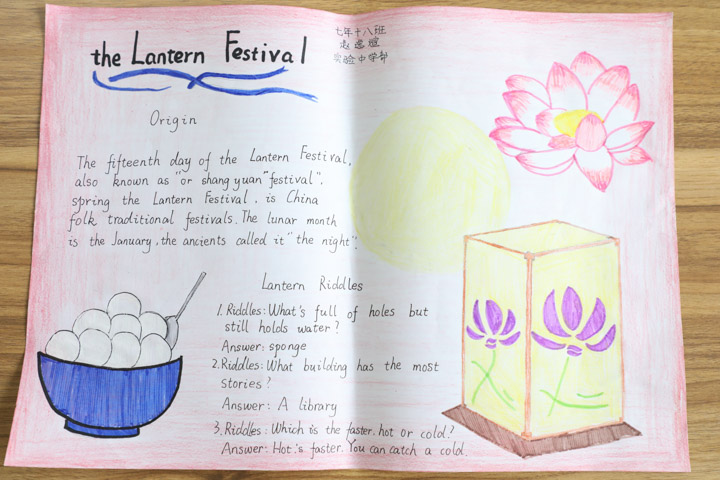 the Lantern Festival
七年十八班
实验中学部
Origin
The fifteenth day of the Lantern Festival,
also known as "or shang yuan" festival".
spring the Lantern Festival, is China
folk traditional festivals. The lunar month
is the January, the ancients called it "the night".
Lantern Riddles
1. Riddles: What's full of holes but
still holds water?
Answer: sponge
2. Riddles: What building has the most
stories?
Answer: A library
3. Riddles: Which is the faster, hot or cold?
Answer: Hot's faster. You can catch a cold.